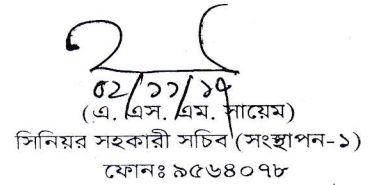 ০২/১১/১৭
(এ. এস. এম. সায়েম)
সিনিয়র সহকারী সচিব (সংস্থাপন-১)
ফোনঃ ৯৫৬৪০৭৮